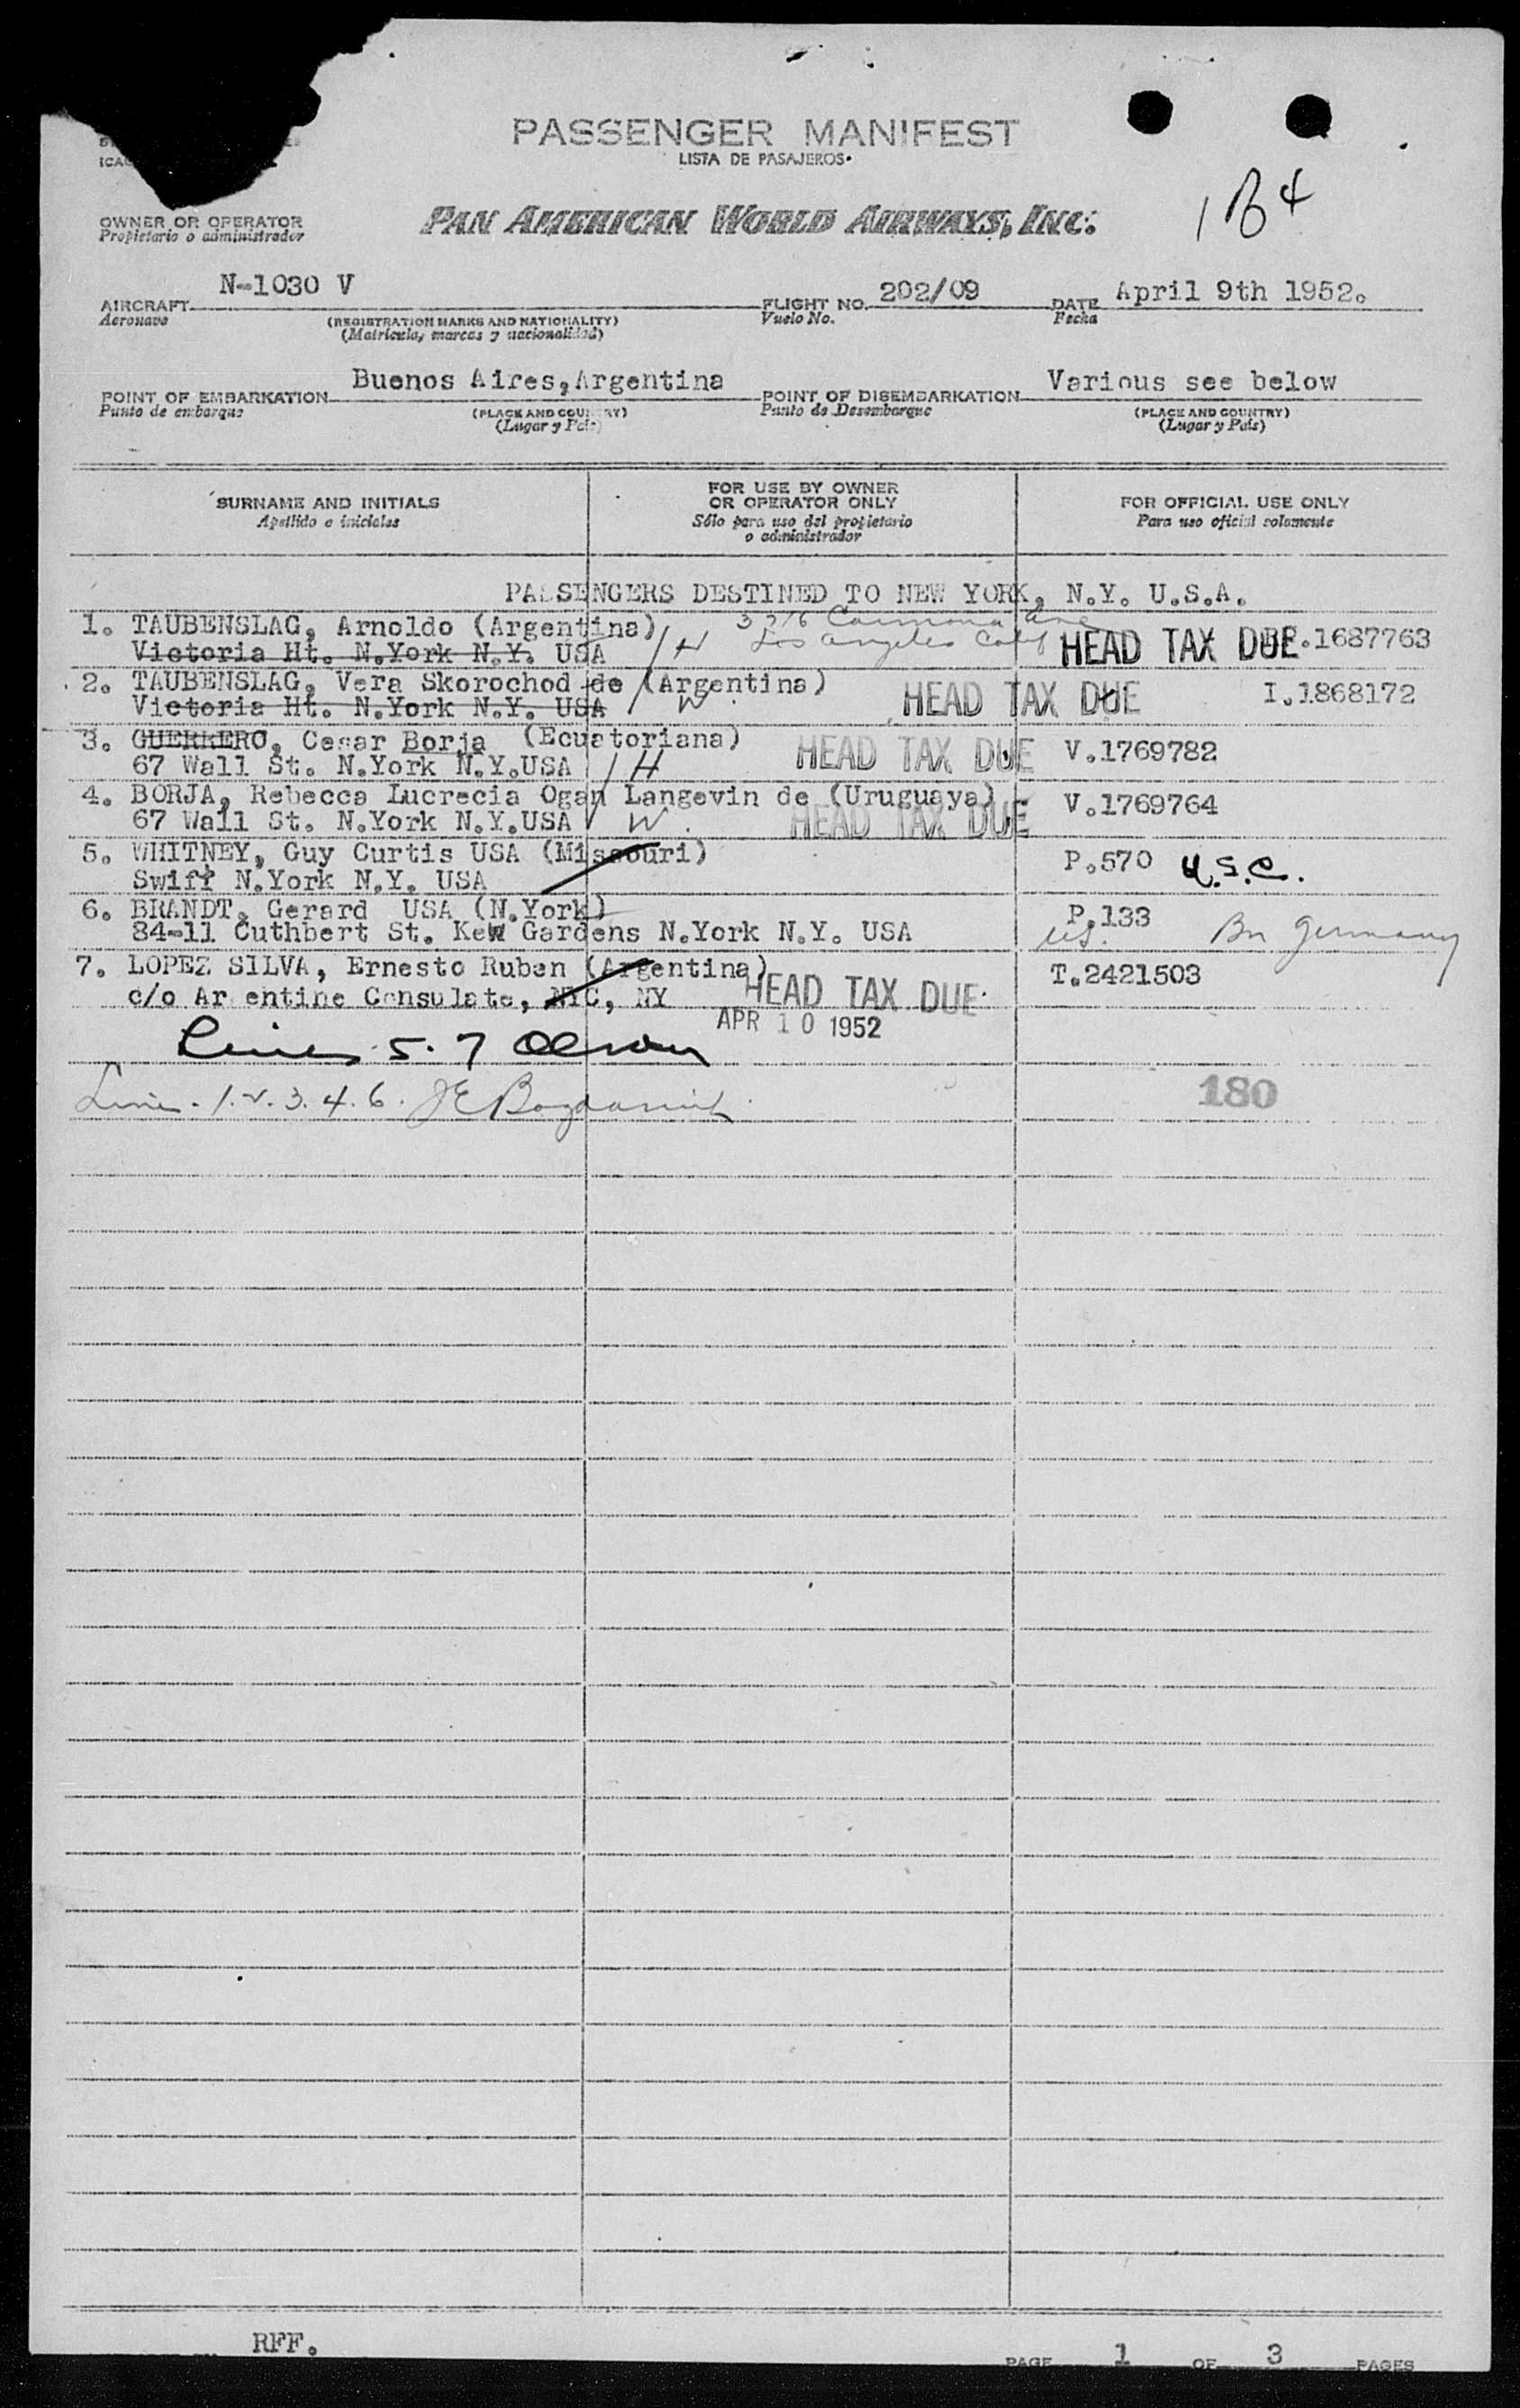 PASSENGER MANIFEST
LISTA DE PASAJEROS
ICAO
OWNER OR OPERATOR
Propietario o administrador
PAN AMERICAN WORLD AIRWAYS, INC.
1 B 4
AIRCRAFT N-1030 V FLIGHT NO. 202/09 DATE April 9th 1952.
Aeronave (REGISTRATION MARKS AND NATIONALITY) Vuelo No. Fecha
(Matricula, marcas y nacionalidad)
POINT OF EMBARKATION Buenos Aires, Argentina POINT OF DISEMBARKATION Various see below
Punto de embarque (PLACE AND COUNTRY) Punto de Desembarque (PLACE AND COUNTRY)
(Lugar y País) (Lugar y País)
SURNAME AND INITIALS FOR USE BY OWNER OR OPERATOR ONLY FOR OFFICIAL USE ONLY
Apellido e iniciales Sólo para uso del propietario o administrador Para uso oficial solamente
PASSENGERS DESTINED TO NEW YORK, N.Y. U.S.A.
1. TAUBENSLAG, Arnoldo (Argentina) Ave
Victoria Ht. N.York N.Y. USA / H Los Angeles Calif HEAD TAX DUE .1687763
2. TAUBENSLAG, Vera Skorochod de (Argentina) HEAD TAX DUE I.1868172
Victoria Ht. N.York N.Y. USA / W.
3. GUERRERO, Cesar Borja (Ecuatoriana) HEAD TAX DUE V.1769782
67 Wall St. N.York N.Y.USA / H
4. BORJA, Rebecca Lucrecia Ogan Langevin de (Uruguaya) V.1769764
67 Wall St. N.York N.Y.USA W. HEAD TAX DUE
5. WHITNEY, Guy Curtis USA (Missouri) P.570 U.S.C.
Swift N.York N.Y. USA
6. BRANDT, Gerard USA (N.York) P.133
84-11 Cuthbert St. Kew Gardens N.York N.Y. USA US. Bn Germany
7. LOPEZ SILVA, Ernesto Ruben (Argentina) T.2421503
c/o Ar entine Consulate, NYC, NY HEAD TAX DUE
APR 10 1952
Lines 5. 7
Lines 1. 2. 3. 4. 6.
180
RFF.
PAGE 1 OF 3 PAGES